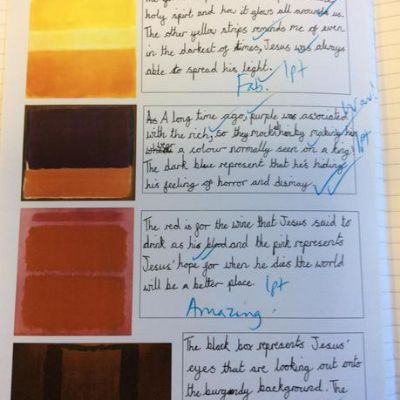 holy spirit and how it glows all around us.
The other yellow strips reminds me of even
in the darkest of times, Jesus was always
able to spread his light.
Fab. 1pt
As A long time ago, purple was associated
with the rich, so they mock him by making him
wear a colour normally seen on a king
The dark blue represent that he's hiding
his feeling of horror and dismay
1pt
The red is for the wine that Jesus said to
drink as his blood and the pink represents
Jesus' hope for when he dies the world
will be a better place. 1pt
Amazing.
The black box represents Jesus'
eyes that are looking out onto
the burgundy background. The